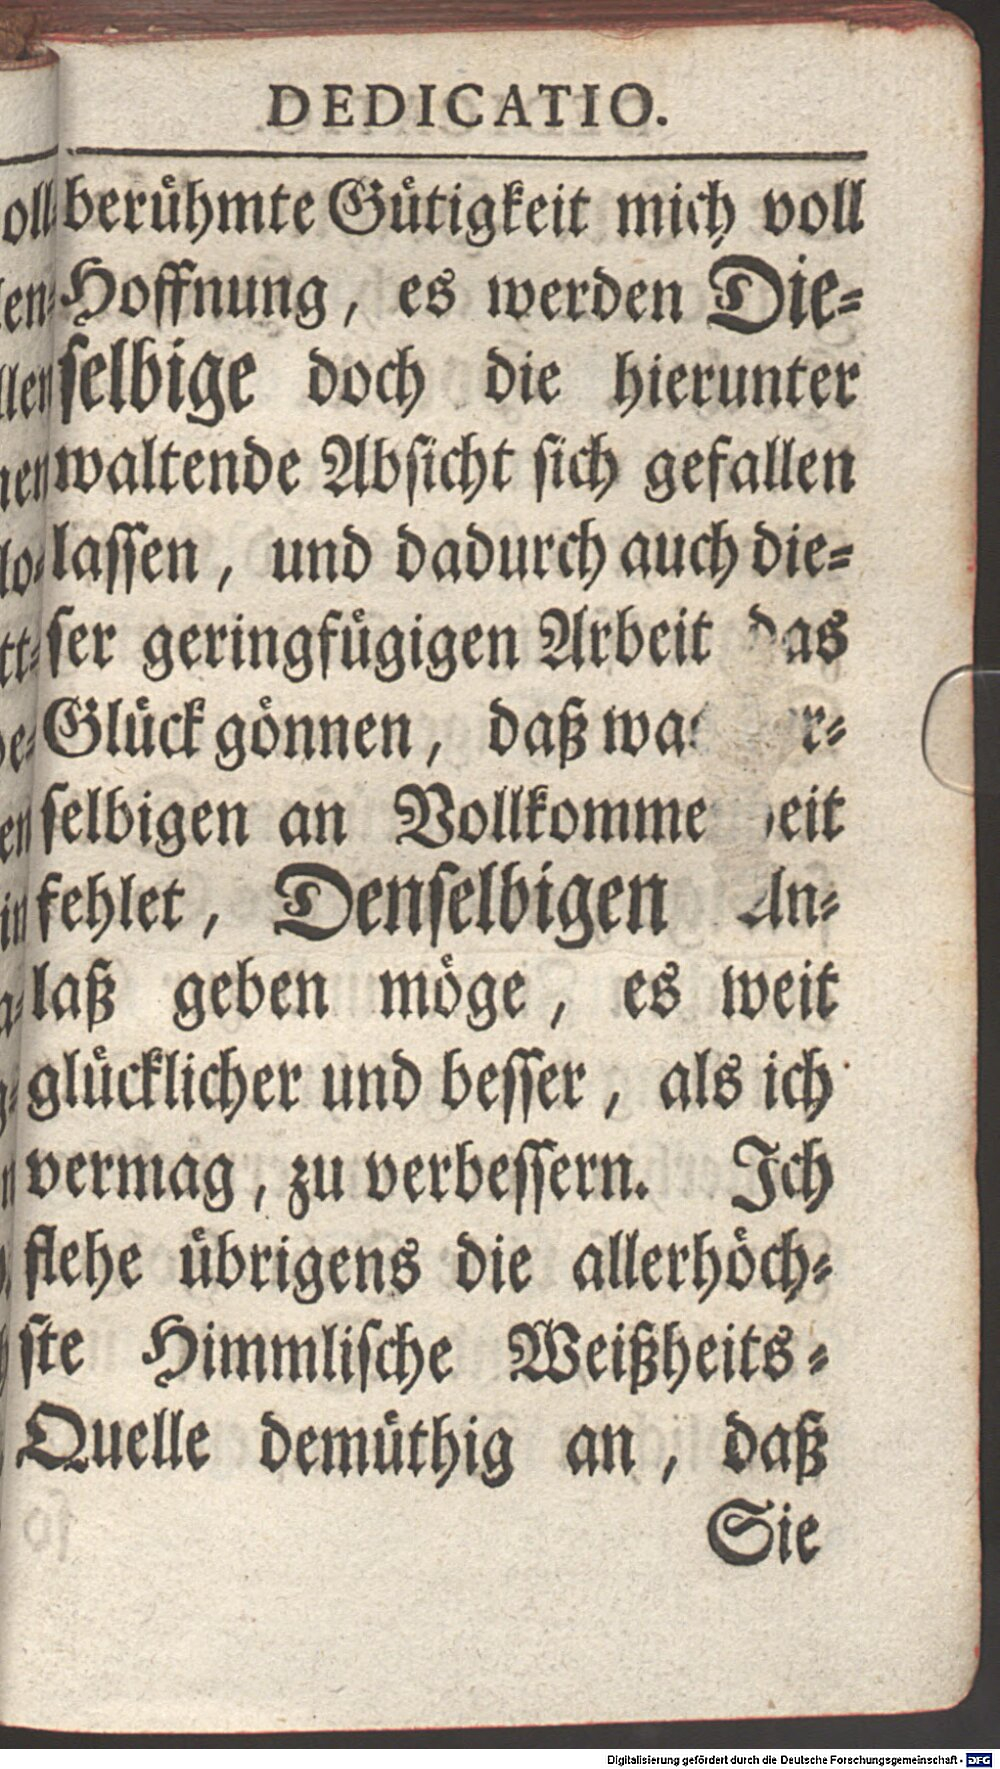 DEDICATIO.
berühmte Gütigkeit mich voll
Hoffnung, es werden Die-
selbige doch die hierunter
waltende Absicht sich gefallen
lassen, und dadurch auch die-
ser geringfügigen Arbeit das
Glück gönnen, daß
selbigen an
fehlet, Denselbigen An-
laß geben möge, es weit
glücklicher und besser, als ich
vermag, zu verbessern. Ich
flehe übrigens die allerhöch-
ste Himmlische Weißheits-
Quelle demüthig an, daß
Sie
Digitalisierung gefördert durch die Deutsche Forschungsgemeinschaft - DFG